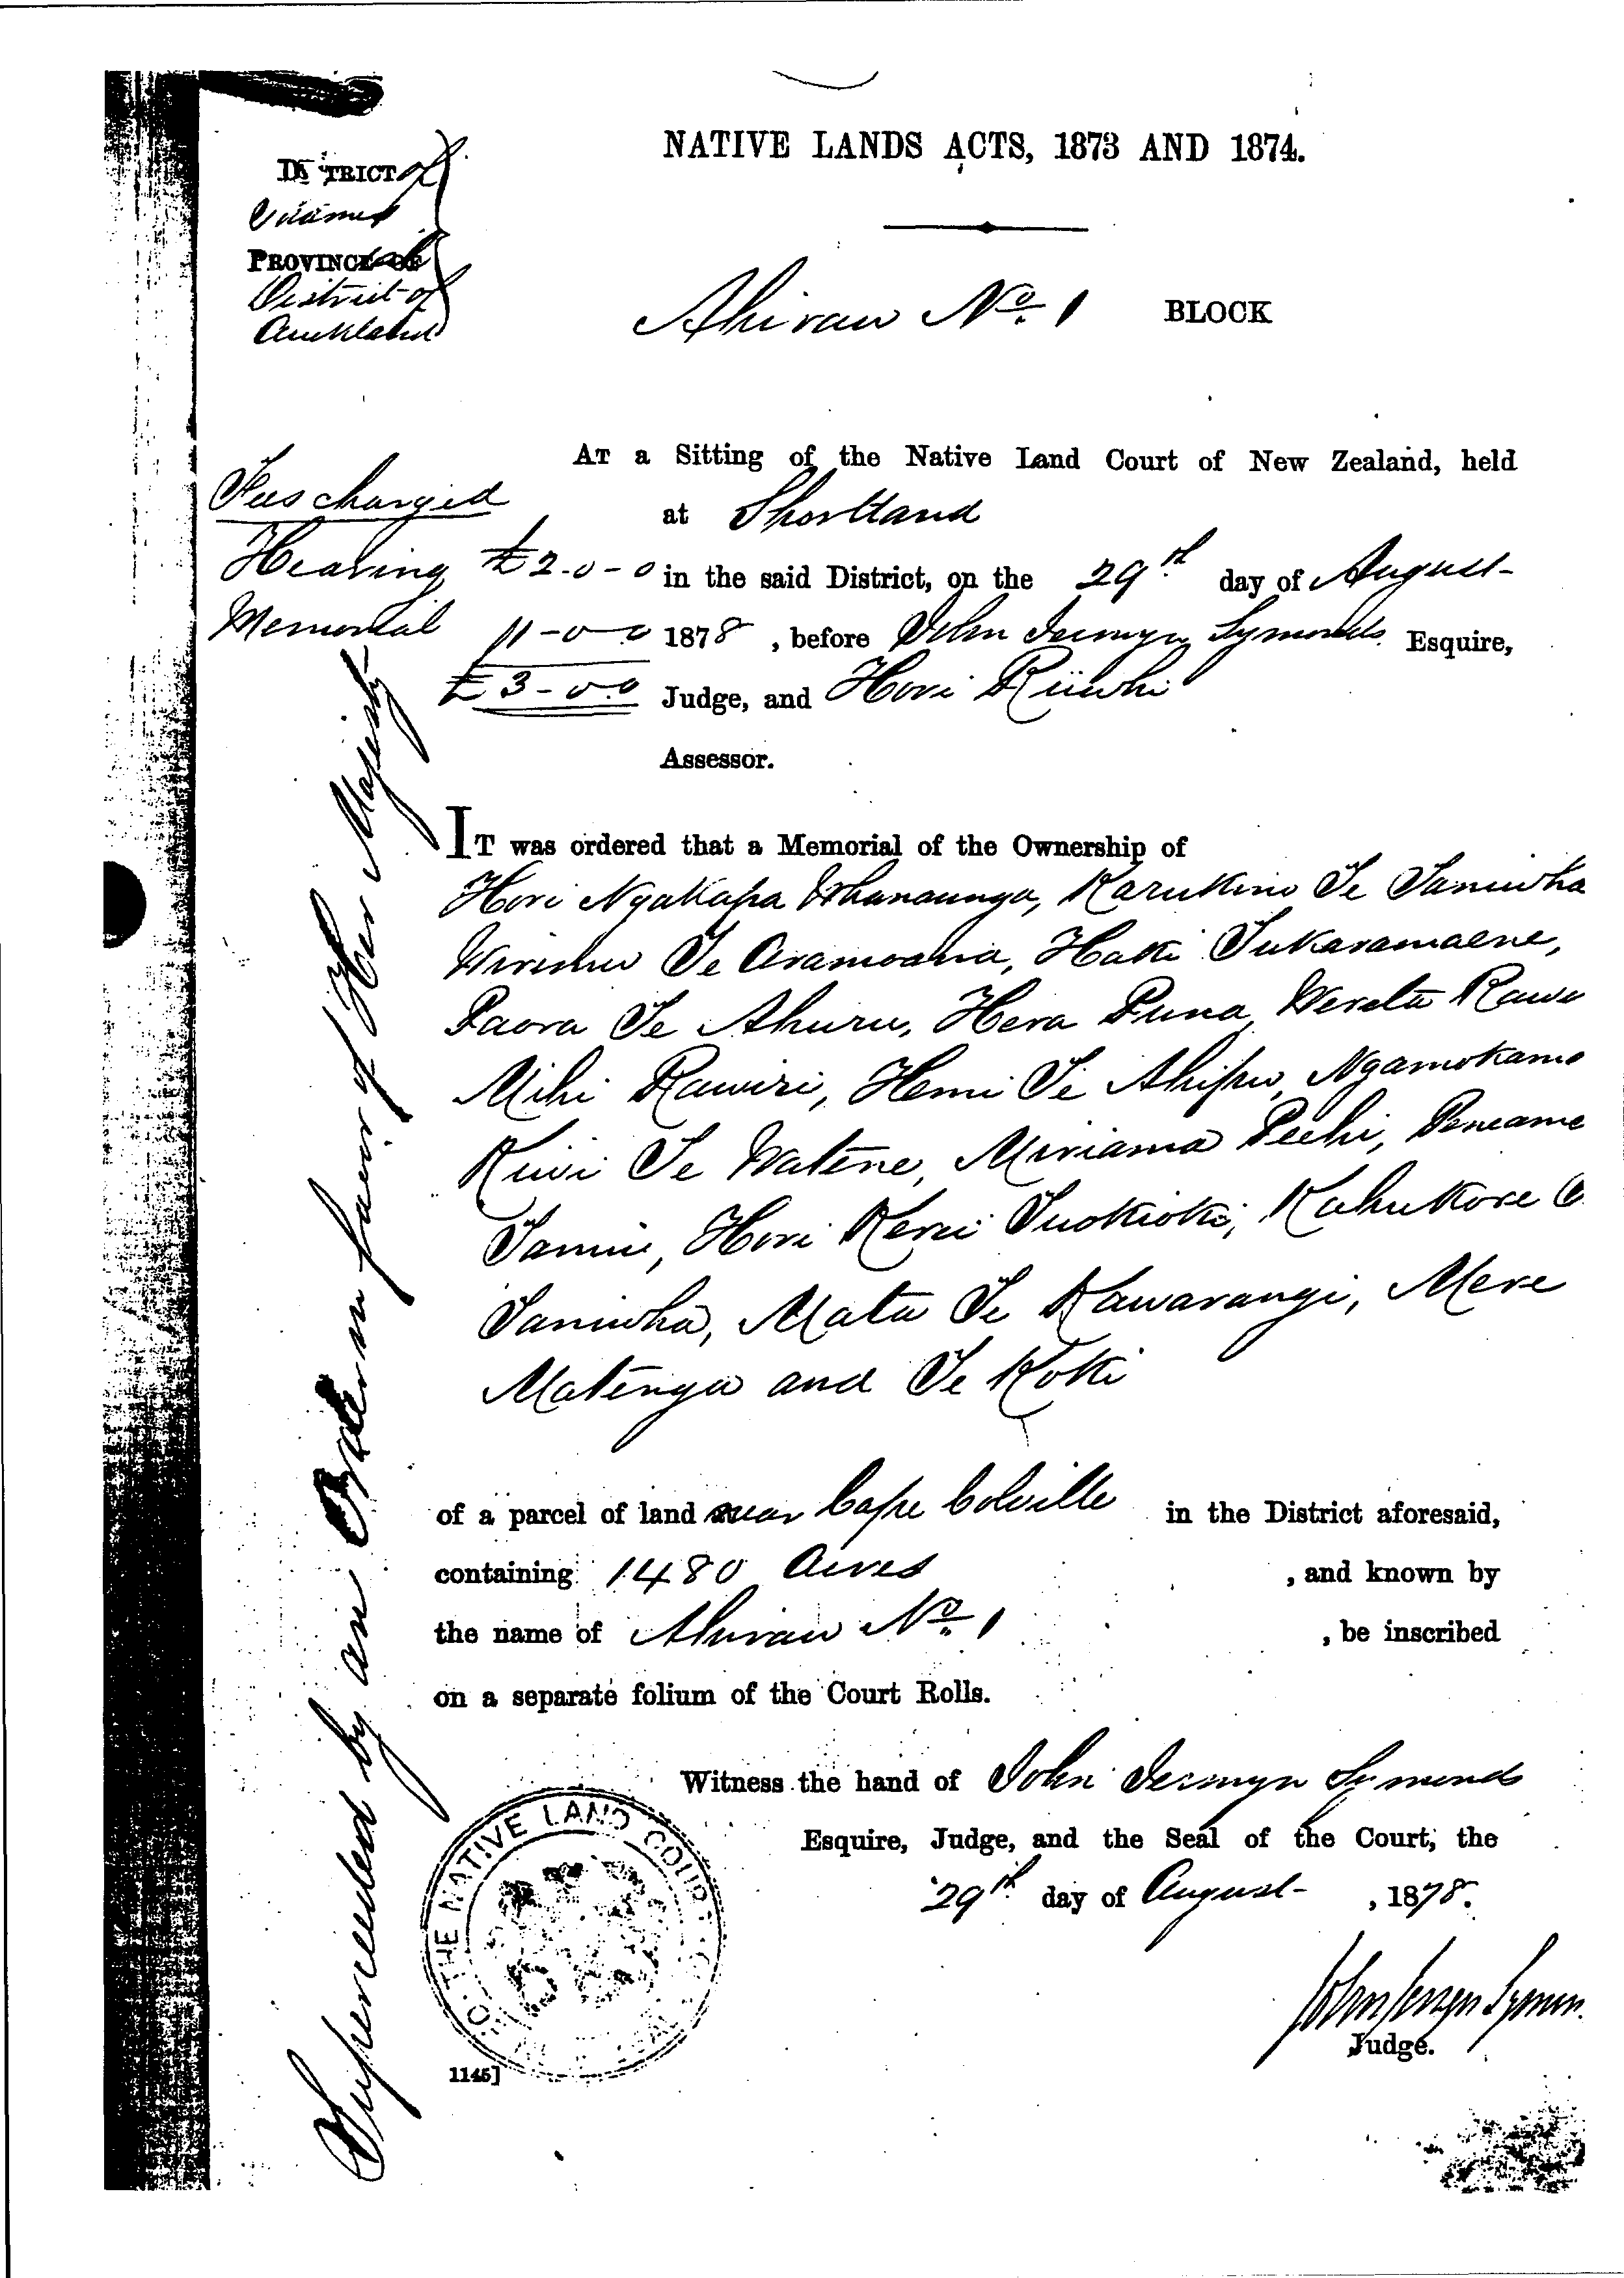 NATIVE LANDS ACTS, 1873 AND 1874.
DISTRICT of
Thames
PROVINCE OF
District of
Auckland
Ahirau No. 1 BLOCK
AT a Sitting of the Native Land Court of New Zealand, held
at Shortland
in the said District, on the 29th day of August
1878, before John Jermyn Symonds Esquire,
Judge, and Hori Riiwhi
Assessor.
Fees charged
Hearing £2-0-0
Memorial 1-0-0
£3-0-0
IT was ordered that a Memorial of the Ownership of
Hori Ngakapa Whanaunga, Karukino Te Taniwha
Wirihu Te Aramoana, Haki Tukaramaene,
Paora Te Ahuru, Hera Puna, Wereta Rawe
Mihi Rawiri, Hemi Te Ahipu, Ngamokamo
Kiwi Te Watene, Miriama Peehi, Peneamene
Tamui, Hori Kerei Tuokioki, Kahukore
Taniwha, Mata Te Kawarangi, Mere
Matenga and Te Koki
of a parcel of land near Cape Colville in the District aforesaid,
containing 1480 Acres, and known by
the name of Ahirau No. 1, be inscribed
on a separate folium of the Court Rolls.
Witness the hand of John Jermyn Symonds
Esquire, Judge, and the Seal of the Court, the
29th day of August, 1878.
John Jermyn Symon
Judge.
THE NATIVE LAND COURT
1145]
Superceeded by an Order in favor of Her Majesty